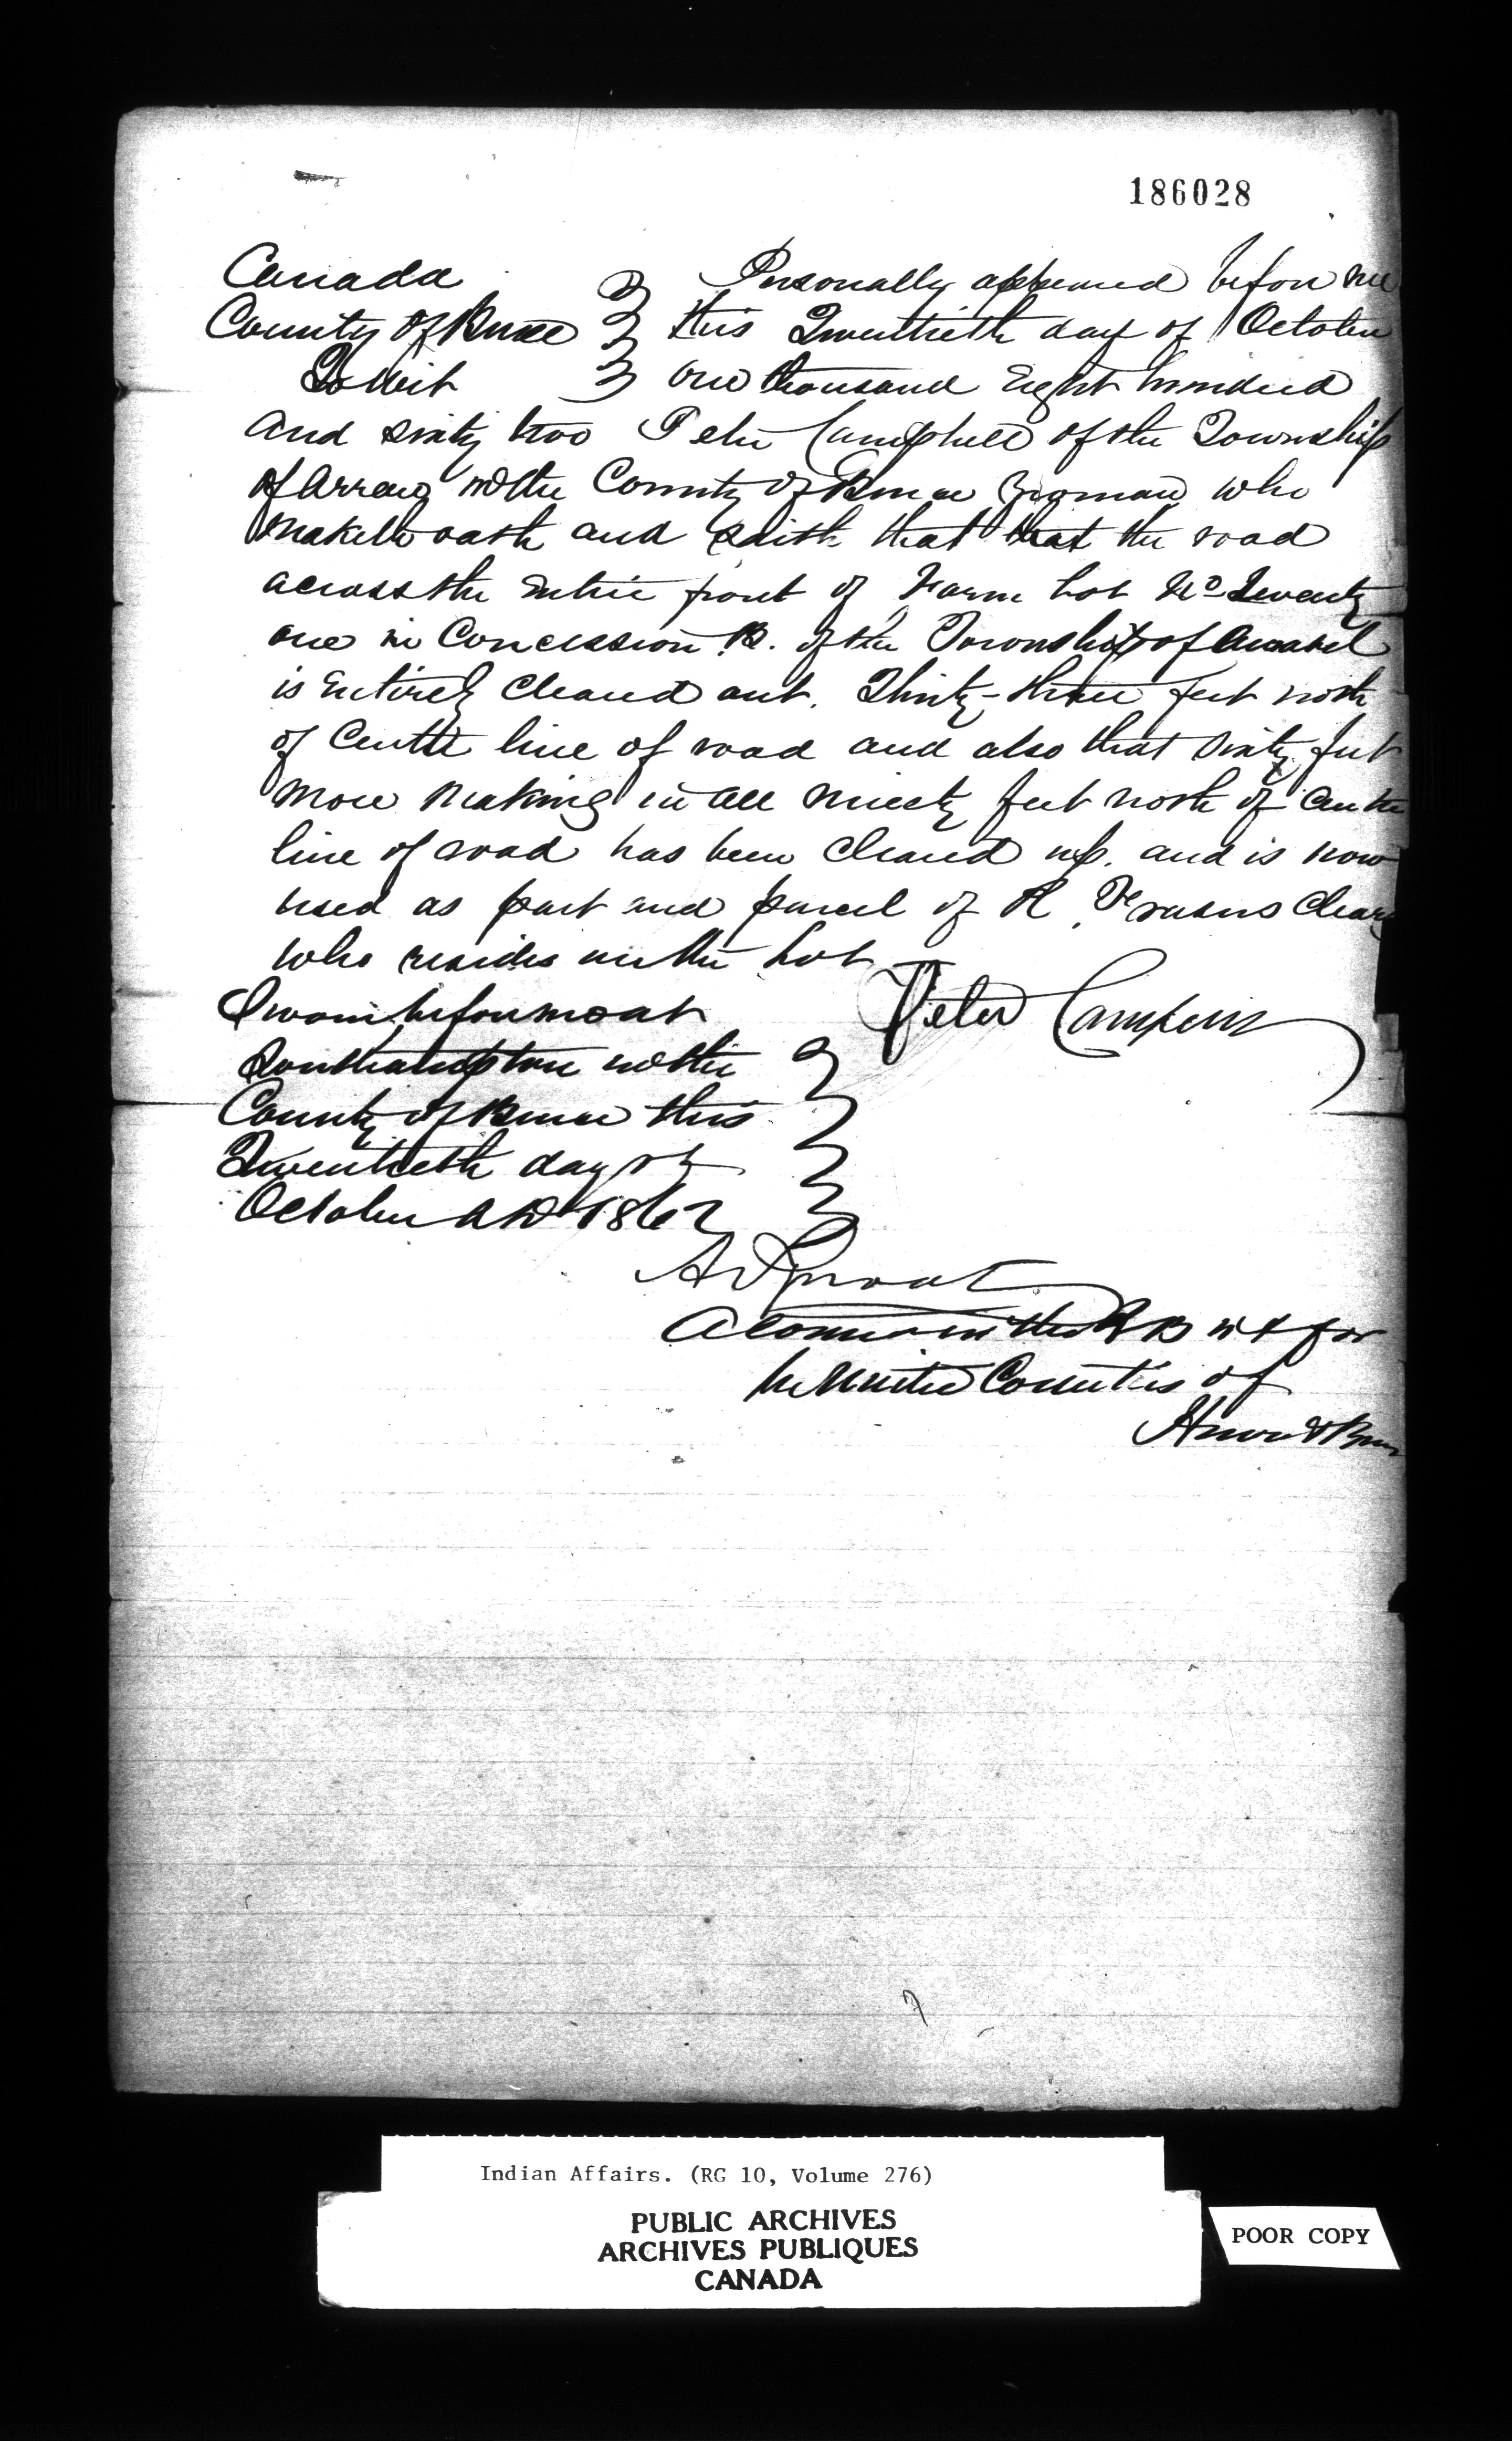 186028
Canada Personally appeared before me
County of Bruce this Twentieth day of October
To Wit one thousand Eight hundred
and sixty two Peter Campbell of the Township
of Arran in the County of Bruce Yeoman who
maketh oath and saith that that the road
across the Entire front of Farm Lot No Twenty
one in Concession B. of the Township of Amabel
is Entirely Cleared out. Thirty-three feet north
of Centre line of road and also that sixty feet
more making in all ninety feet north of Centre
line of road has been Cleared up. and is now
used as part and parcel of R. Frasers Clear
who resides on the Lot
Sworn before me at Peter Campbell
Southampton in the
County of Bruce this
Twentieth day of
October AD 1862
A Sproat
A Commr in the B R &c for
the United Counties of
Huron & Bruce
Indian Affairs. (RG 10, Volume 276)
PUBLIC ARCHIVES
ARCHIVES PUBLIQUES
CANADA
POOR COPY